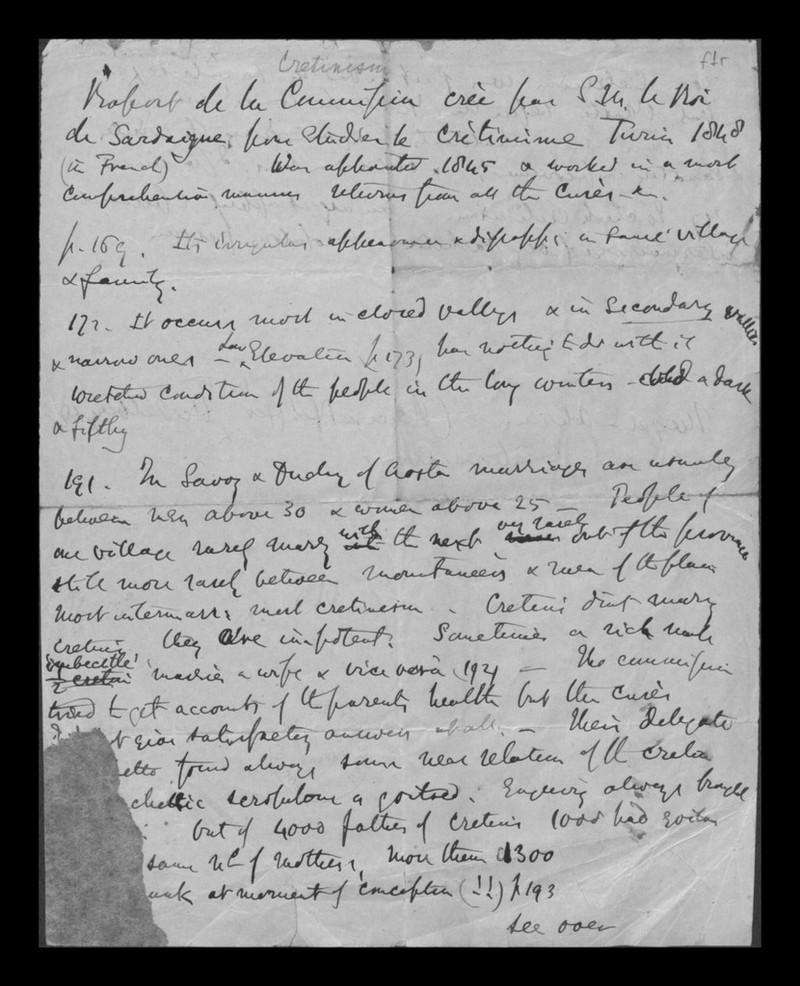 Cretinism
f1r
Raport de la Commission crée par S.M. le Roi
de Sardaigne, pour étudier le Crétinisme Turin 1848
(in French) Was appointed 1845 & worked in a most
comprehensive manner returns from all the Curés &c.
p. 169. Its irregular appearance & disapp: in same village
& family.
172. It occurs most in closed valleys & in Secondary vallies
& narrow ones – Low Elevation p 173, has nothing to do with it
wretched condition of the people in the long winters – cold & dark
& filthy
191. In Savoy & Duchy of Aosta marriages are usually
between men above 30 & women above 25 – People of
one village rarely marry with the next very rarely out of the province
still more rarely between mountaineers & men of the plain
Most intermarr: most cretinism. Cretins dint marry
cretins they are impotent. Sometimes a rich male
'imbecille' marries a wife & vice versâ (192) – The commission
tried to get accounts of the parents health but the Curés
not give satisfactory answers at all. – Their delegate
etto found always some near relation of the cretin
chectic scrofulous or goitred. Enquiry always
: Out of 4000 fathers of Cretins 1000 had goitre
same No. of mothers, more than 1300
unk at moment of conception (!!) p 193
see over